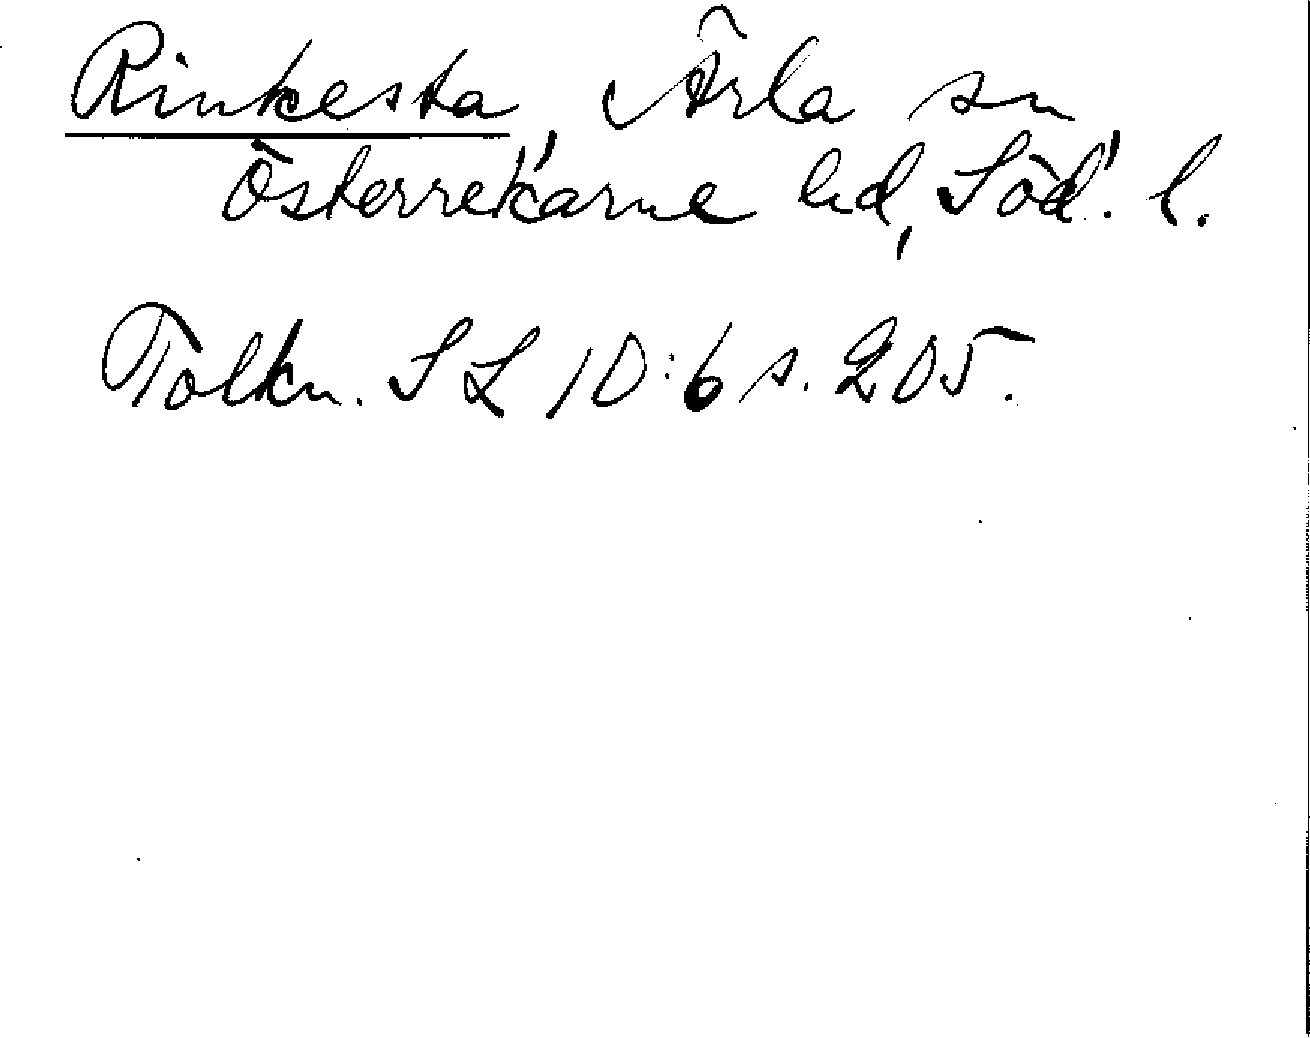 Rinkesta, Ärla sn
Österrekarne hd, Söd. l.
Tolkn. SL 10:6 s. 205.